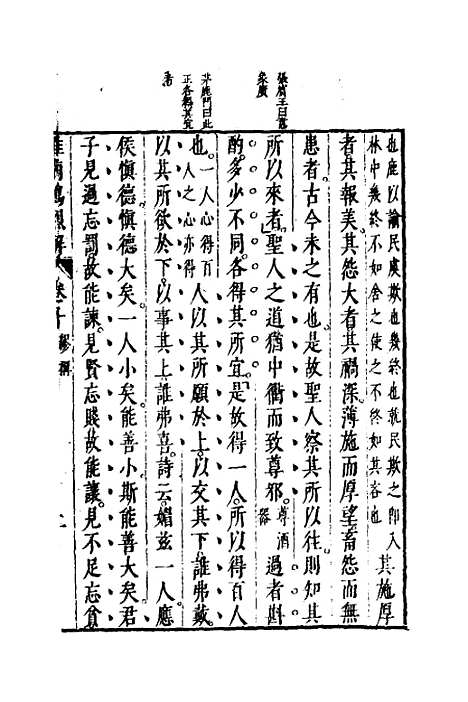 張賓王曰
象廣
茅鹿門曰此
也鹿以諭民虞欺也幾終也就民欺之即入
林中幾終不如舍之使之不終如其吝也
其施厚
者其報美其怨大者其禍深薄施而厚望畜怨而無
患者古今未之有也是故聖人察其所以往則知其
所以來者聖人之道猶中衢而致尊邪尊酒器過者斟
酌多少不同各得其所宜是故得一人所以得百人
也一人心得百人之心亦得人以其所願於上以交其下誰弗戴
以其所欲於下以事其上誰弗喜詩云媚兹一人應
侯慎德慎德大矣一人小矣能善小斯能善大矣君
子見過忘罰故能諫見賢忘賤故能讓見不足忘貧
淮南鴻烈解 卷十 繆稱